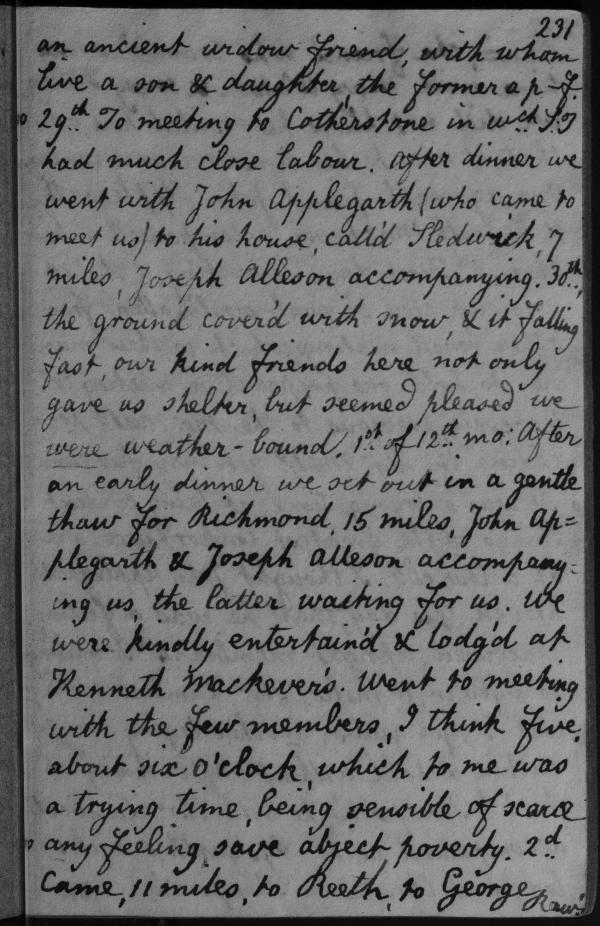 231
an ancient widow friend, with whom
live a son & daughter, the former a p-f.
29th To meeting to Cotherstone in wch S:T
had much close labour. After dinner we
went with John Applegarth (who came to
meet us) to his house, call'd Sledwick, 7
miles, Joseph Alleson accompanying. 30th,
the ground cover'd with snow, & it falling
fast, our kind friends here not only
gave us shelter, but seemed pleased we
were weather-bound. 1st of 12th mo: After
an early dinner we set out in a gentle
thaw for Richmond, 15 miles, John Ap=
plegarth & Joseph Alleson accompany=
ing us, the latter waiting for us. We
were kindly entertain'd & lodg'd at
Kenneth Mackever's. Went to meeting
with the few members, I think five,
about six o'clock, which to me was
a trying time, being sensible of scarce
any feeling save abject poverty. 2d
Came, 11 miles, to Reeth, to George
Raw's